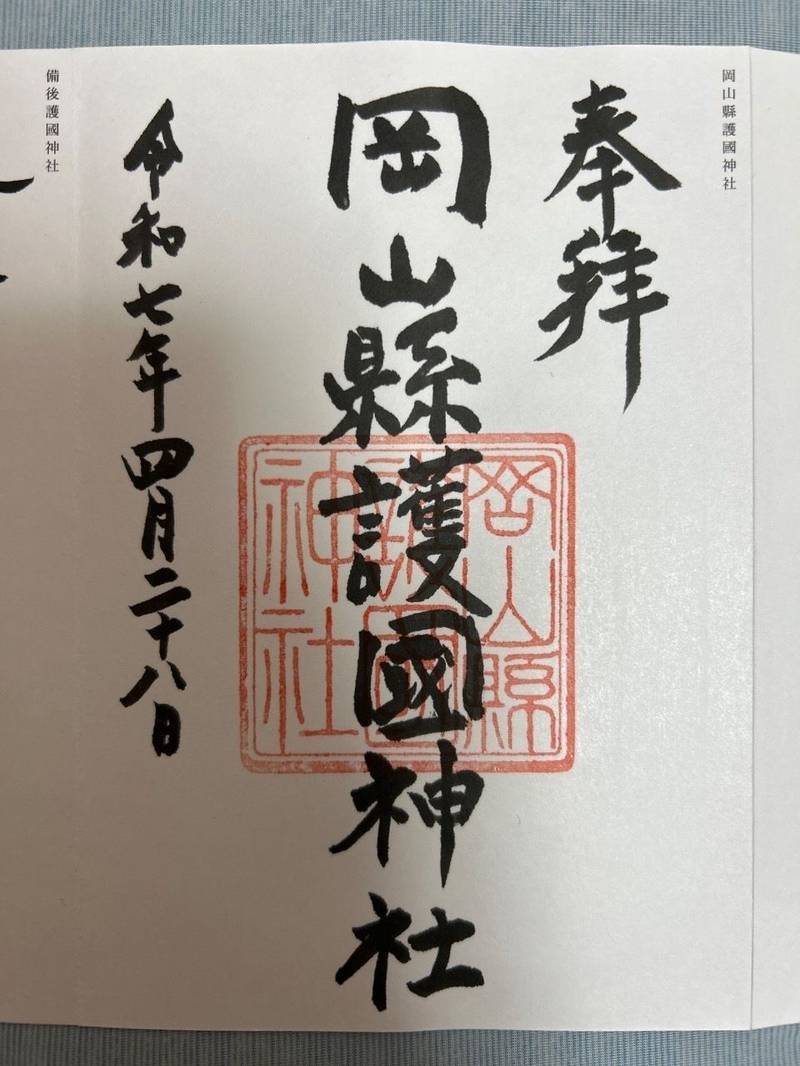 岡山縣護國神社
奉拝
岡山縣護國神社
岡山縣
護國
神社
令和七年四月二十八日
備後護國神社